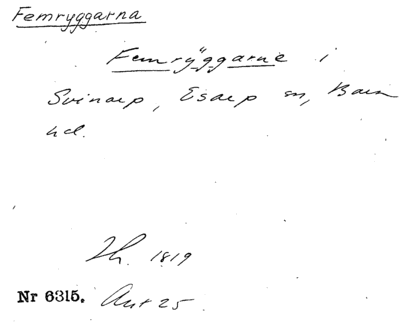 Femryggarna
Femrÿggarne i
Svinarp, Esarp sn, Bara
hd.
Th. 1819
Nr 6315. Akt 25